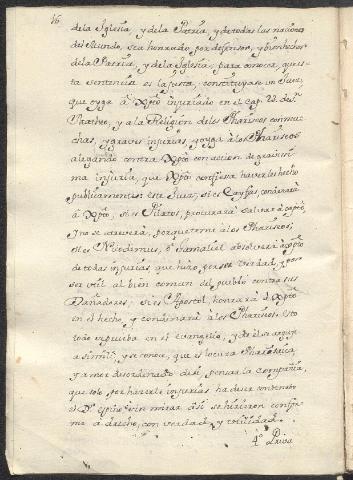 16
de la Iglesia, y de la Patria, y de todas las naciones
del Mundo, sea honrado por defensor, y bienhechor
de la Patria, y de la Iglesia; para conocer, que es-
ta sentencia es la justa, constituyase un Juez,
que oyga à Xpto injuriado en el cap. 23. de Sn
Matheo, y a la Religion de los Phariseos con mu-
chas, y graves injurias, y oyga à los Phariseos
alegando contra Xpto con accion de gravissi-
ma injuria, que Xpto confiessa haverles hecho
publicamente: este Juez, si es Cayfas, condenarà
à Xpto; si es Pilatos, procurarà salvar à Xpto,
y no se atreverà, porque teme à los Phariseos;
si es Nicodemus, ò Gamaliel absolverà à Xpto
de todas injurias, que hizo, por ser verdad, y por
ser util al bien comun del pueblo contra sus
Dañadores; si es Apostol, honrarà à Xpto
en el hecho, y condenarà à los Phariseos. Esto
todo se prueba en el evangelio, y de èl se arguye
à simili, y se conoce, que es locura Pharisaica,
y amor desordenado del pensar la Compañia,
que solo por haverle injurias ha de ser condenado
el Dr. Espino sin mirar, si se hicieron confor-
me a derecho, con verdad, y utilidad.
4º Priva